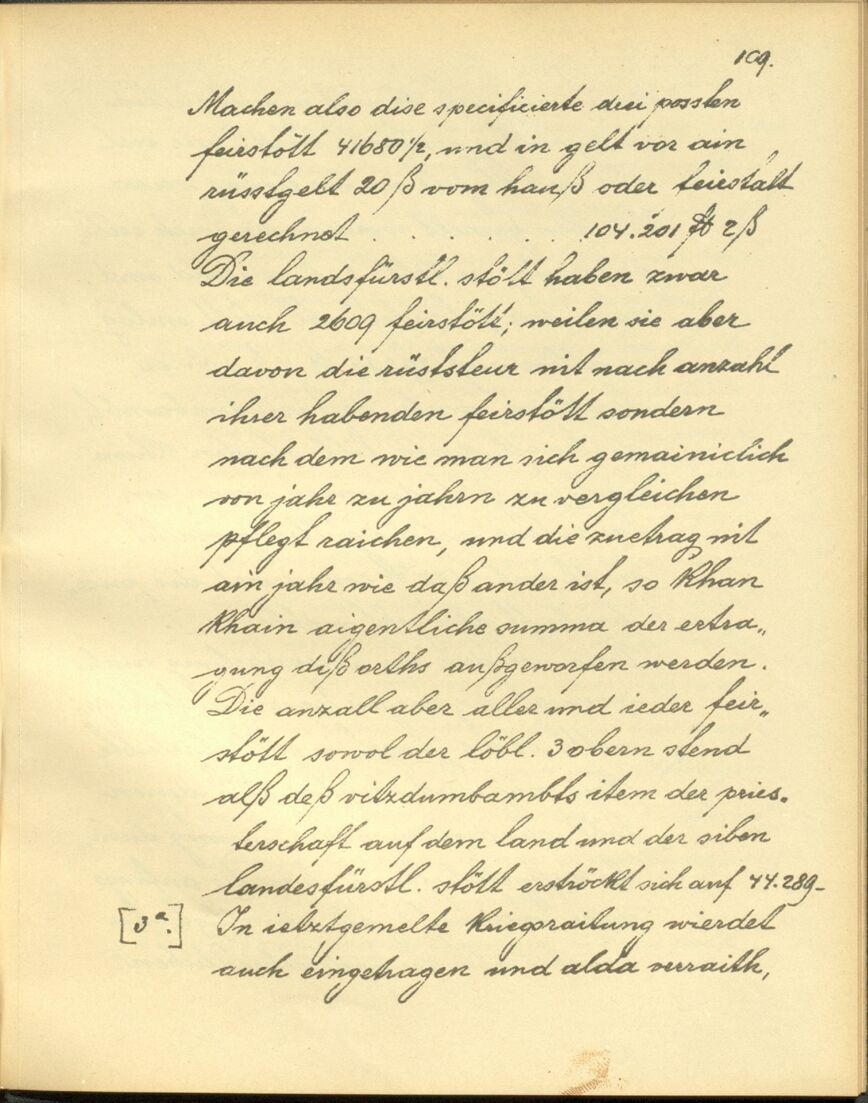 109.
Machen also dise specificierte drei possten
feirstött 41680 1/2, und in gelt vor ain
rüsstgelt 20 ß vom hauß oder feirstatt
gerechnet . . . . . 104.201 fl 2 ß
Die landsfürstl. stött haben zwar
auch 2609 feirstött; weilen sie aber
davon die rüststeur nit nach anzahl
ihrer habenden feirstött sondern
nach dem wie man sich gemainiclich
von jahr zu jahrn zu vergleichen
pflegt raichen, und die zuetrag nit
ain jahr wie daß ander ist, so khan
khain aigentliche summa der ertra„
gung diß orths außgeworfen werden.
Die anzall aber aller und ieder feir„
stött sowol der löbl. 3 obern stend
alß deß vitzdumbambts item der pries-
terschaft auf dem land und der siben
landesfürstl. stött erströckt sich auf 44.289-
[3ª.] In ietztgemelte kriegsraitung wierdet
auch eingetragen und alda verraith,